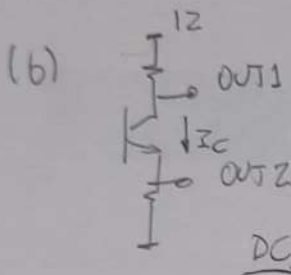 12
(6)
OUT1
Ic
OUT2
DC